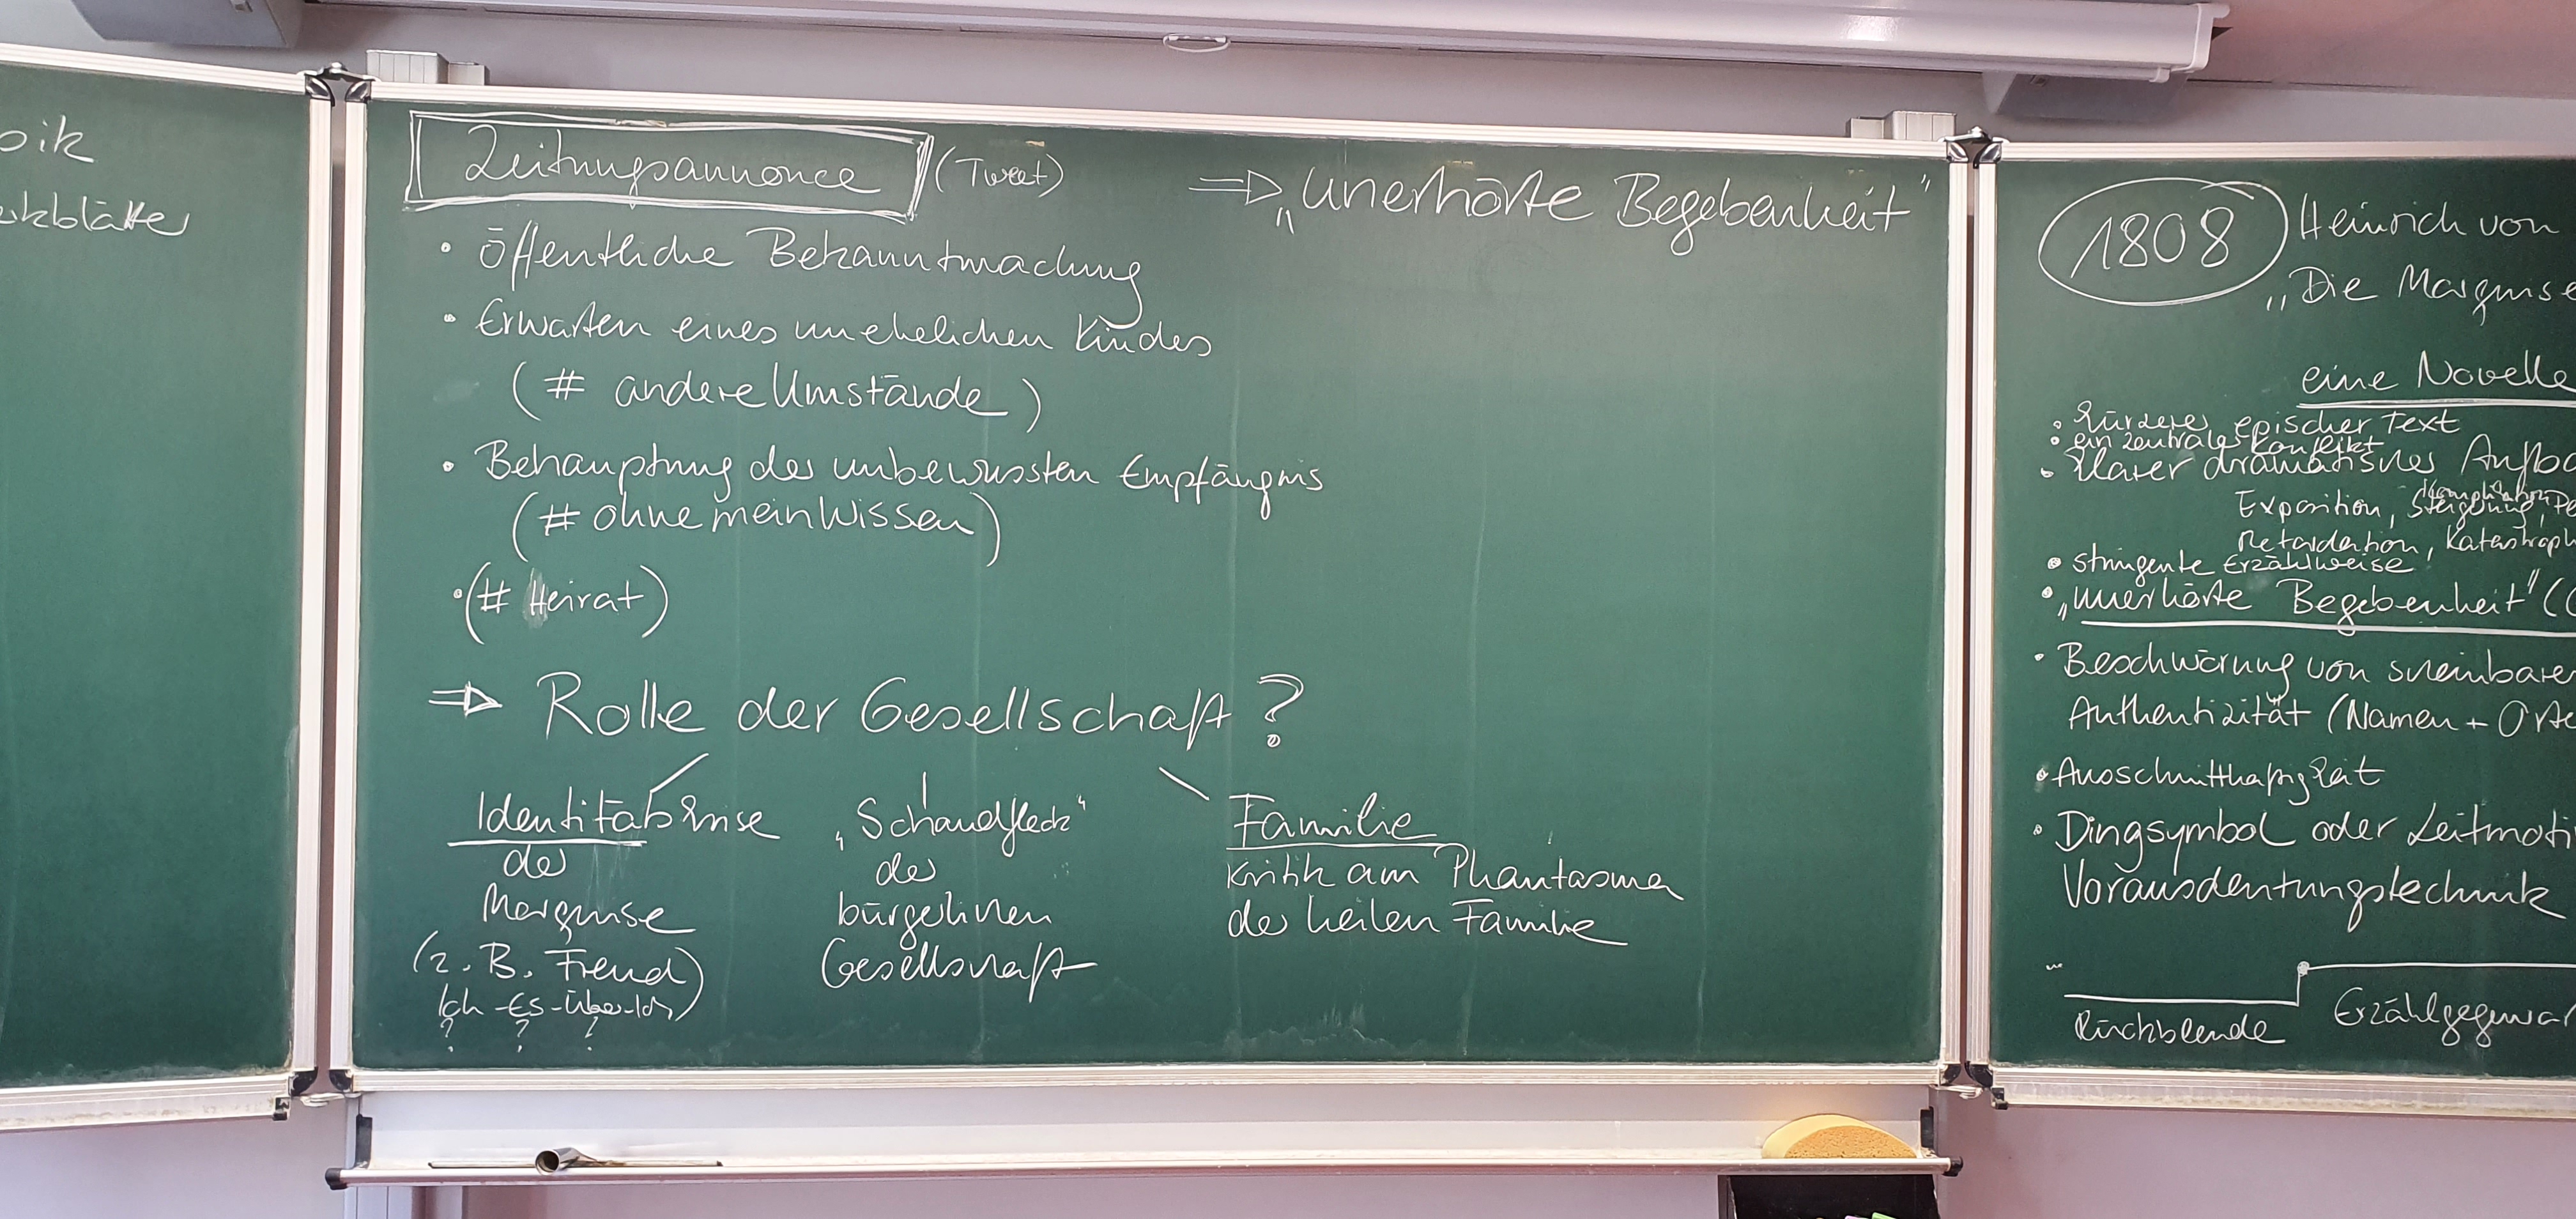 oik
rkblätter
Zeitungsannonce (Tweet) ⇒ „unerhörte Begebenheit"
• öffentliche Bekanntmachung
• Erwarten eines unehelichen Kindes
(# andere Umstände)
• Behauptung der unbewussten Empfängnis
(# ohne mein Wissen)
• (# Heirat)
⇒ Rolle der Gesellschaft?
Identitätskrise
der
Marquise
(z.B. Freud)
Ich-Es-Über-Ich)
? ? ?
„Schandfleck"
der
bürgerlichen
Gesellschaft
Familie
Kritik am Phantasma
der heilen Familie
1808 Heinrich von
„Die Marquise
eine Novelle
• kürzerer epischer Text
• ein zentraler Konflikt
• klarer dramatischer Aufba
Komplikation
Exposition, Steigerung, Pe
Retardation, Katastroph
• stringente Erzählweise
• „unerhörte Begebenheit" (
• Beschwörung von scheinbarer
Authentizität (Namen + Orte
• Ausschnitthaftigkeit
• Dingsymbol oder Leitmoti
Vorausdeutungstechnik
Rückblende Erzählgegenwar